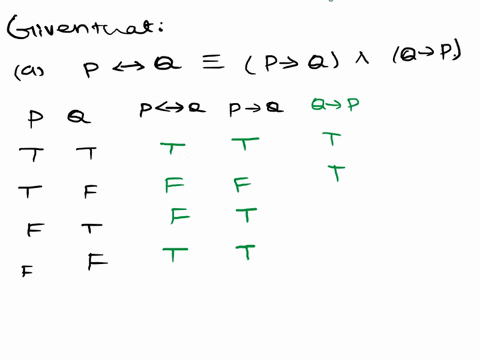 Given that:
(a) P ↔ Q ≡ (P → Q) ∧ (Q → P)
P Q P ↔ Q P → Q Q → P
T T T T T
T F F F T
F T F T
F F T T